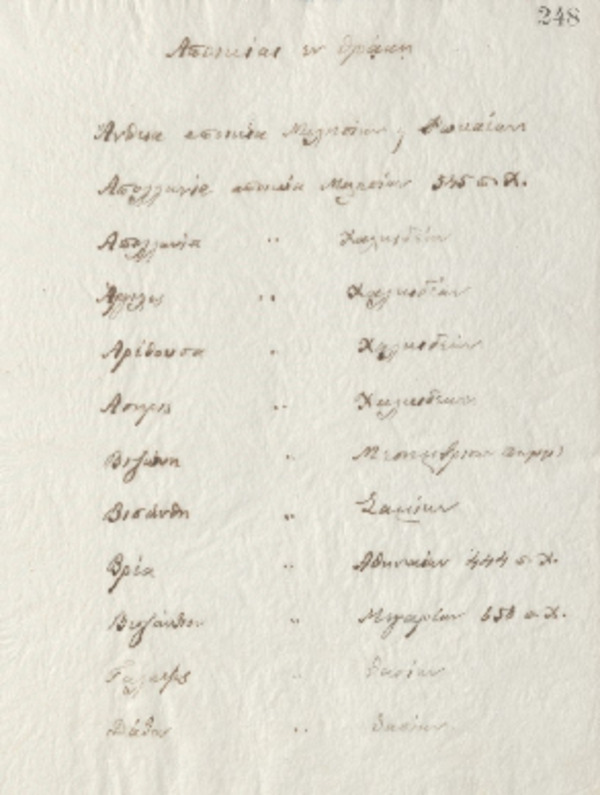 248
Αποικίαι εν Θράκη
Άνθεια αποικία Μιλησίων ή Φωκαέων
Απολλωνία αποικία Μιλησίων 545 π. Χ.
Απολλωνία " Χαλκιδέων
Άργιλος " Χαλκιδέων
Αρέθουσα " Χαλκιδέων
" Χαλκιδέων
Βιζώνη " Μεσημβρίων
Βισάνθη " Σαμίων
Βρέα " Αθηναίων 444 π. Χ.
Βυζάντιον " Μεγαρέων 658 π. Χ.
Γαληψός " Θασίων
Δάτον " Θασίων